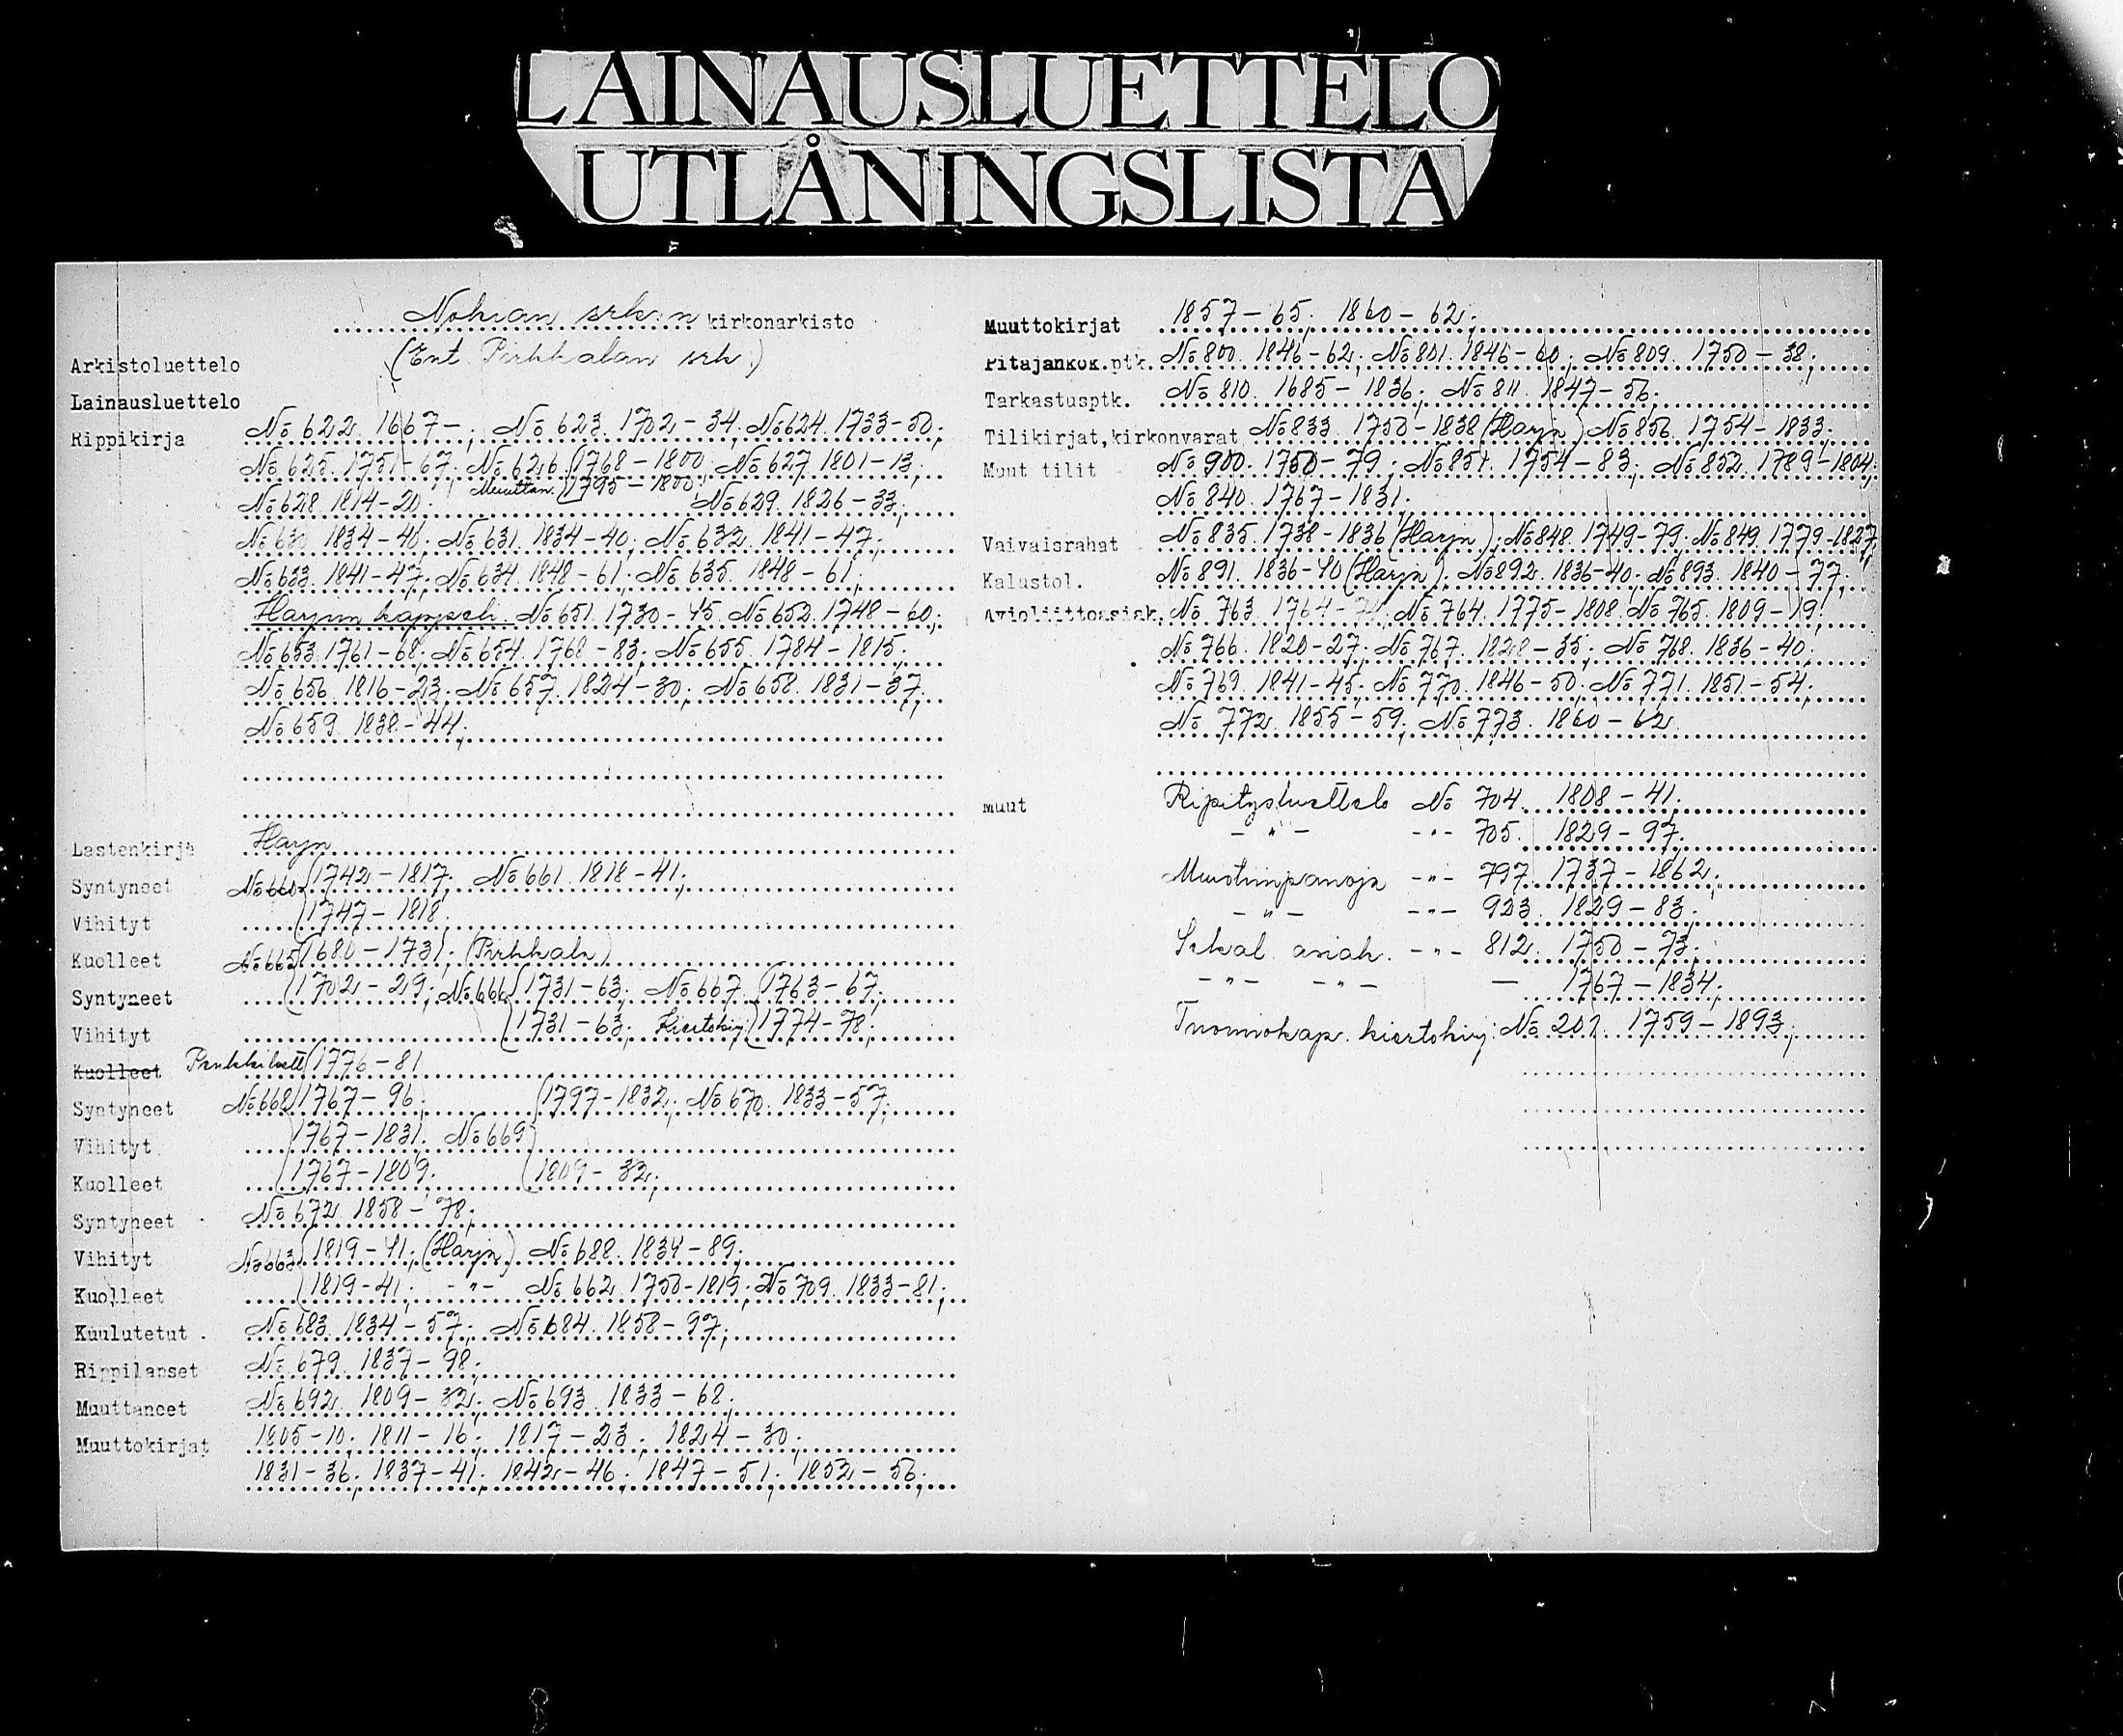 LAINAUSLUETTELO
UTLÅNINGSLISTA
Nokian srk:n kirkonarkisto
Arkistoluettelo (Ent. Pirkkalan srk.)
Lainausluettelo
Rippikirja No 622. 1667-; No 623. 1702-34; No 624. 1733-50;
No 625. 1751-67; No 626. 1768-1800; No 627. 1801-13;
Muuttan. 1795-1800;
No 628. 1814-20; No 629. 1826-33;
No 630. 1834-40; No 631. 1834-40; No 632. 1841-47;
No 633. 1841-47; No 634. 1848-61; No 635. 1848-61;
Harjun kappeli. No 651. 1730-45. No 652. 1748-60;
No 653. 1761-68; No 654. 1768-83; No 655. 1784-1815;
No 656. 1816-23; No 657. 1824-30; No 658. 1831-37;
No 659. 1838-44;
Lastenkirja Harjn
Syntyneet No 660 1742-1817; No 661. 1818-41;
Vihityt 1747-1818;
Kuolleet No 665 1680-1731; (Pirkkala)
Syntyneet 1702-29; No 666 1731-63; No 667. 1763-67;
Vihityt 1731-63; Kiertokirj. 1774-78;
Kuolleet Penkkiluett 1776-81
Syntyneet No 668 1767-96; 1797-1832; No 670. 1833-57;
Vihityt 1767-1831. No 669
Kuolleet 1767-1809; 1809-32;
Syntyneet No 672. 1858-78;
Vihityt No 663 1819-41; (Harjn) No 688. 1834-89;
Kuolleet 1819-41; -"- No 662. 1750-1819; No 709. 1833-81;
Kuulutetut No 683. 1834-57; No 684. 1858-97;
Rippilapset No 679. 1837-98;
Muuttaneet No 692. 1809-32; No 693. 1833-68;
Muuttokirjat 1805-10; 1811-16; 1817-23; 1824-30;
1831-36; 1837-41; 1842-46; 1847-51; 1852-56;
Muuttokirjat 1857-65; 1860-62;
Pitäjänkok.ptk. No 800. 1846-62; No 801. 1846-60; No 809. 1750-38;
Tarkastusptk. No 810. 1685-1836; No 811. 1847-56;
Tilikirjat,kirkonvarat No 833. 1750-1838 (Harjn) No 850. 1754-1833;
Muut tilit No 900. 1750-79; No 851. 1754-83; No 852. 1789-1804;
No 840. 1767-1831;
Vaivaisrahat No 835. 1738-1836 (Harjn); No 848. 1749-79; No 849. 1779-1827;
Kalustol. No 891. 1836-40 (Harjn). No 892. 1836-40; No 893. 1840-77;
Avioliittoasiak. No 763. 1764-74; No 764. 1775-1808. No 765. 1809-19;
No 766. 1820-27; No 767. 1828-35; No 768. 1836-40;
No 769. 1841-45; No 770. 1846-50; No 771. 1851-54;
No 772. 1855-59; No 773. 1860-62
Muut Ripitysluettelo No 704. 1808-41;
-"- -"- 705. 1829-97;
Muistiinpanoja -"- 797. 1737-1862;
-"- -"- 923. 1829-83;
Sekal. asiak. -"- 812. 1750-73;
-"- -"- — 1767-1834;
Tuomiokap. kiertokirj: No 201. 1759-1893;